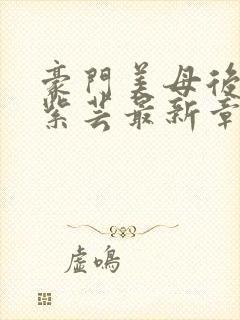 豪門美母後
紫芸最新章
虛鳴